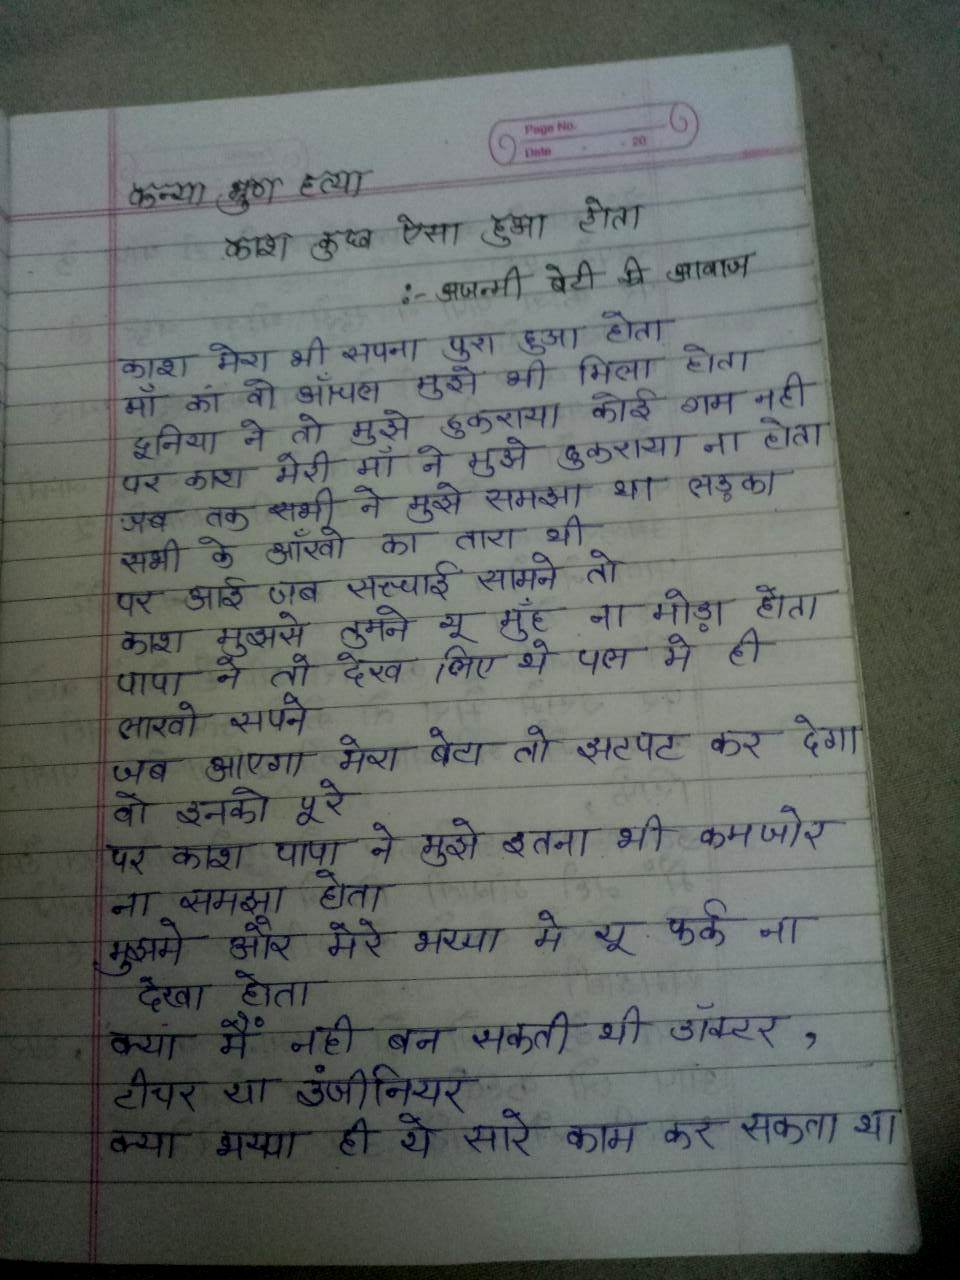 Page No.
Date - - 20
कन्या भ्रुण हत्या
काश कुछ ऐसा हुआ होता
:- अजन्मी बेटी की आवाज
काश मेरा भी सपना पुरा हुआ होता
माँ कां वो आँचल मुझे भी मिला होता
दूनिया ने तो मुझे ठुकराया कोई गम नही
पर काश मेरी माँ ने मुझे ठुकराया ना होता
जब तक सभी ने मुझे समझा था लड़का
सभी के आँखो का तारा थी
पर आई जब सच्चाई सामने तो
काश मुझसे तुमने यू मुँह ना मोड़ा होता
पापा ने तो देख लिए थे पल मे ही
लाखो सपने
जब आएगा मेरा बेटा तो झटपट कर देगा
वो इनको पूरे
पर काश पापा ने मुझे इतना भी कमजोर
ना समझा होता
मुझमे और मेरे भय्या मे यू फर्क ना
देखा होता
क्या मैं नही बन सकती थी डॉक्टर ,
टीचर या इंजीनियर
क्या भय्या ही ये सारे काम कर सकता था